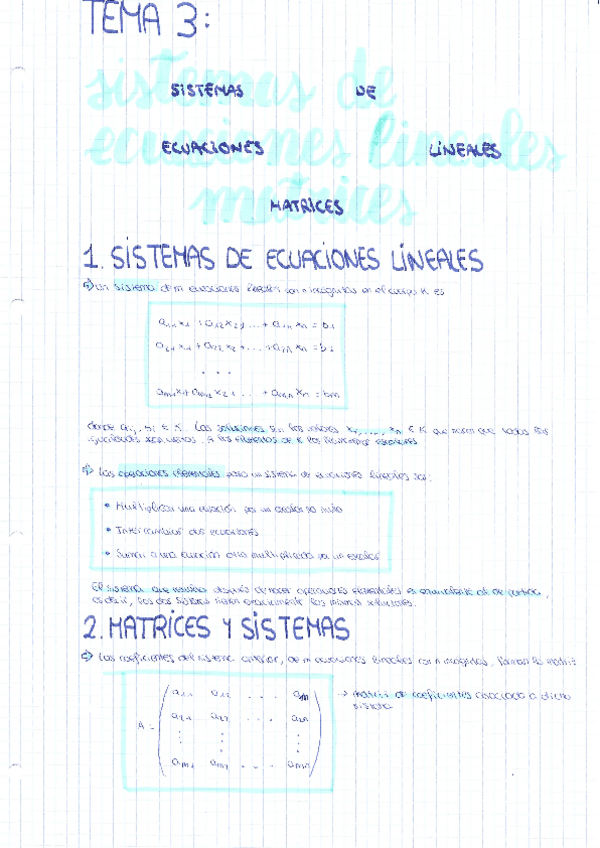 TEMA 3:
sistemas de
SISTEMAS DE
ecuaciones lineales
ECUACIONES LINEALES
matrices
MATRICES
1. SISTEMAS DE ECUACIONES LINEALES
Un sistema de m ecuaciones lineales con n incógnitas en el cuerpo K es
a₁₁x₁ + a₁₂x₂ + ... + a₁ₙxₙ = b₁
a₂₁x₁ + a₂₂x₂ + ... + a₂ₙxₙ = b₂
...
aₘ₁x₁ + aₘ₂x₂ + ... + aₘₙxₙ = bₘ
donde aᵢⱼ, bᵢ ∈ K. Las soluciones son los valores x₁, ..., xₙ ∈ K que hacen que todas las
igualdades sean ciertas. A los elementos de K los llamamos escalares
Las operaciones elementales para un sistema de ecuaciones lineales son:
• Multiplicar una ecuación por un escalar no nulo
• Intercambiar dos ecuaciones
• Sumar a una ecuación otra multiplicada por un escalar
El sistema que resulta después de hacer operaciones elementales es equivalente al de partida,
es decir, los dos sistemas tienen exactamente las mismas soluciones.
2. MATRICES Y SISTEMAS
Los coeficientes del sistema anterior, de m ecuaciones lineales con n incógnitas, forman la matriz
a₁₁ a₁₂ . . . a₁ₙ → matriz de coeficientes asociada a dicho
sistema
a₂₁ a₂₂ . . . a₂ₙ
A =
⋮ ⋮ ⋮
aₘ₁ aₘ₂ . . . aₘₙ